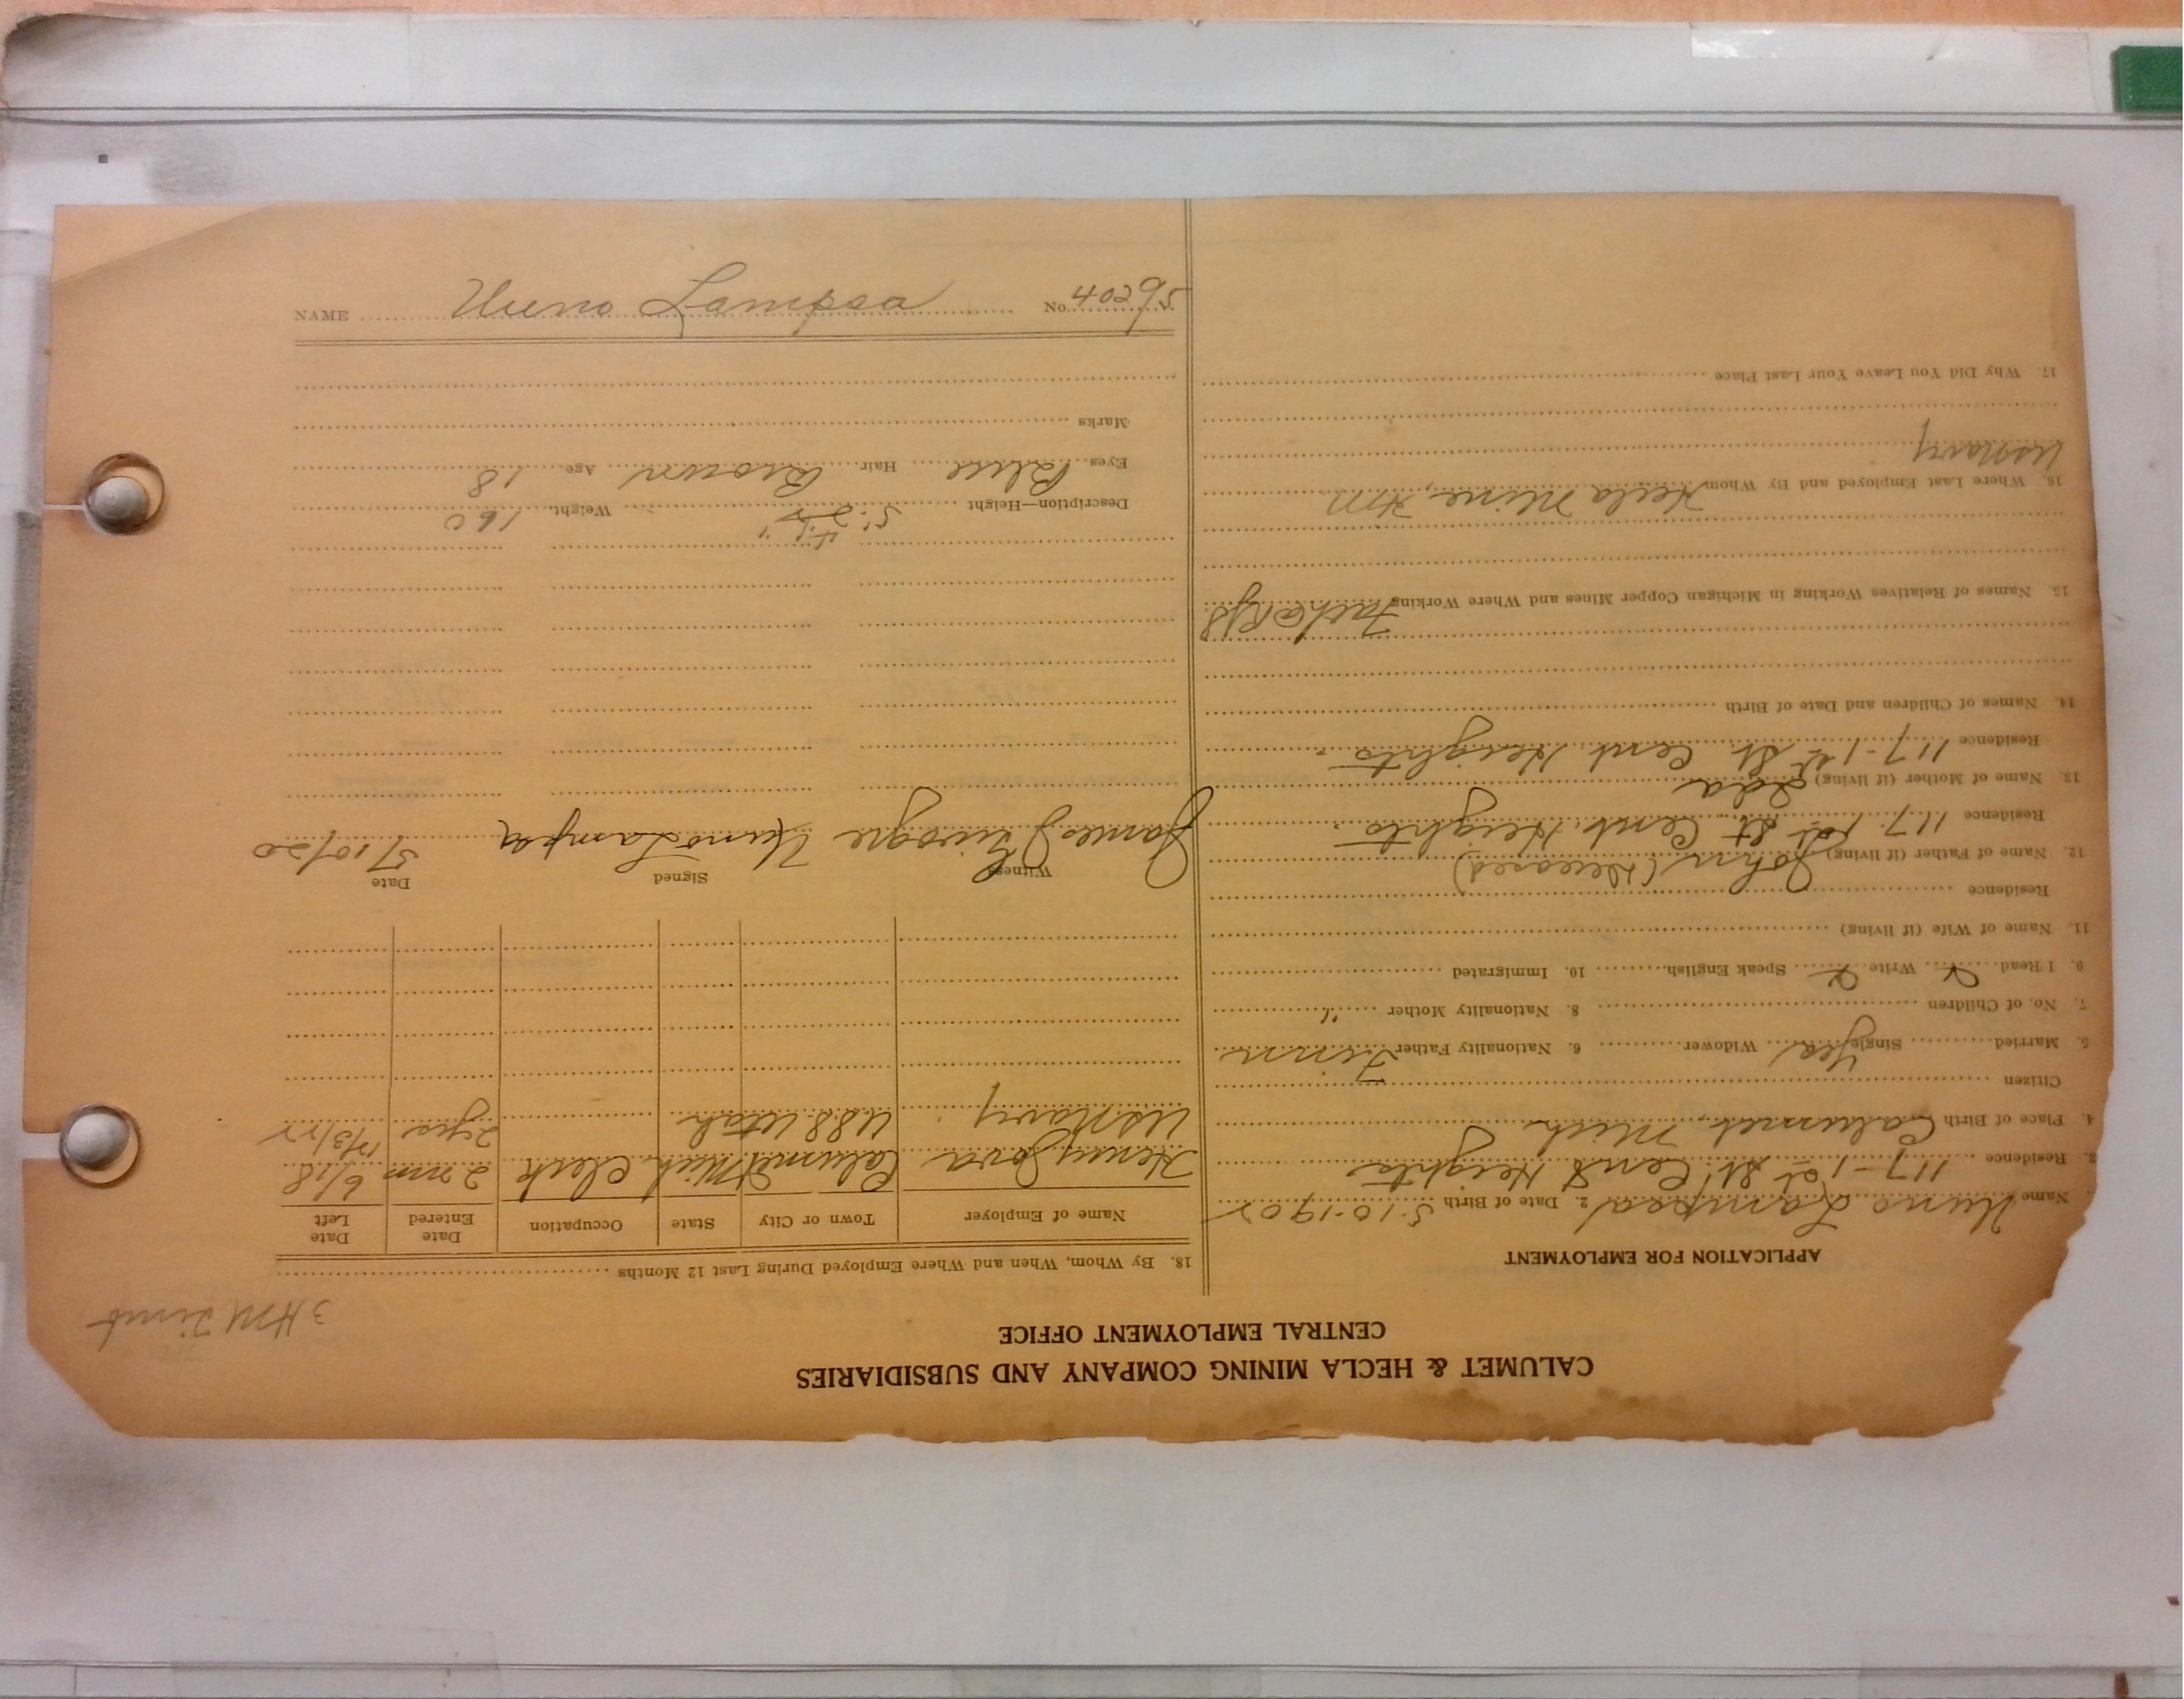 CALUMET & HECLA MINING COMPANY AND SUBSIDIARIES
CENTRAL EMPLOYMENT OFFICE
3 HM
APPLICATION FOR EMPLOYMENT
Name Uuno Lampsa 2. Date of Birth 5-10-1902
3. Residence 117-1st St. Cent Heights
4. Place of Birth Calumet, Mich
Citizen
5. Married Single Yes Widower 6. Nationality Father Finn
7. No. of Children 8. Nationality Mother "
9. I Read Write Speak English 10. Immigrated
11. Name of Wife (if living)
Residence
12. Name of Father (if living) John (Deceased)
Residence 117 1st St Cent. Heights.
13. Name of Mother (if living) Ida
Residence 117-1st St. Cent. Heights.
14. Names of Children and Date of Birth
15. Names of Relatives Working in Michigan Copper Mines and Where Working
16. Where Last Employed and By Whom Hecla Mine, HM
US Navy
17. Why Did You Leave Your Last Place
18. By Whom, When and Where Employed During Last 12 Months
Name of Employer Town or City State Occupation Date Entered Date Left
Henry Calumet Mich Clerk 2 mn 6/18
US Navy USS Utah 2 yrs
Witness Signed Date
James Uuno Lampsa 5/10/20
Description—Height 5' Weight 160
Eyes Blue Hair Brown Age 18
Marks
NAME Uuno Lampsa No. 40295